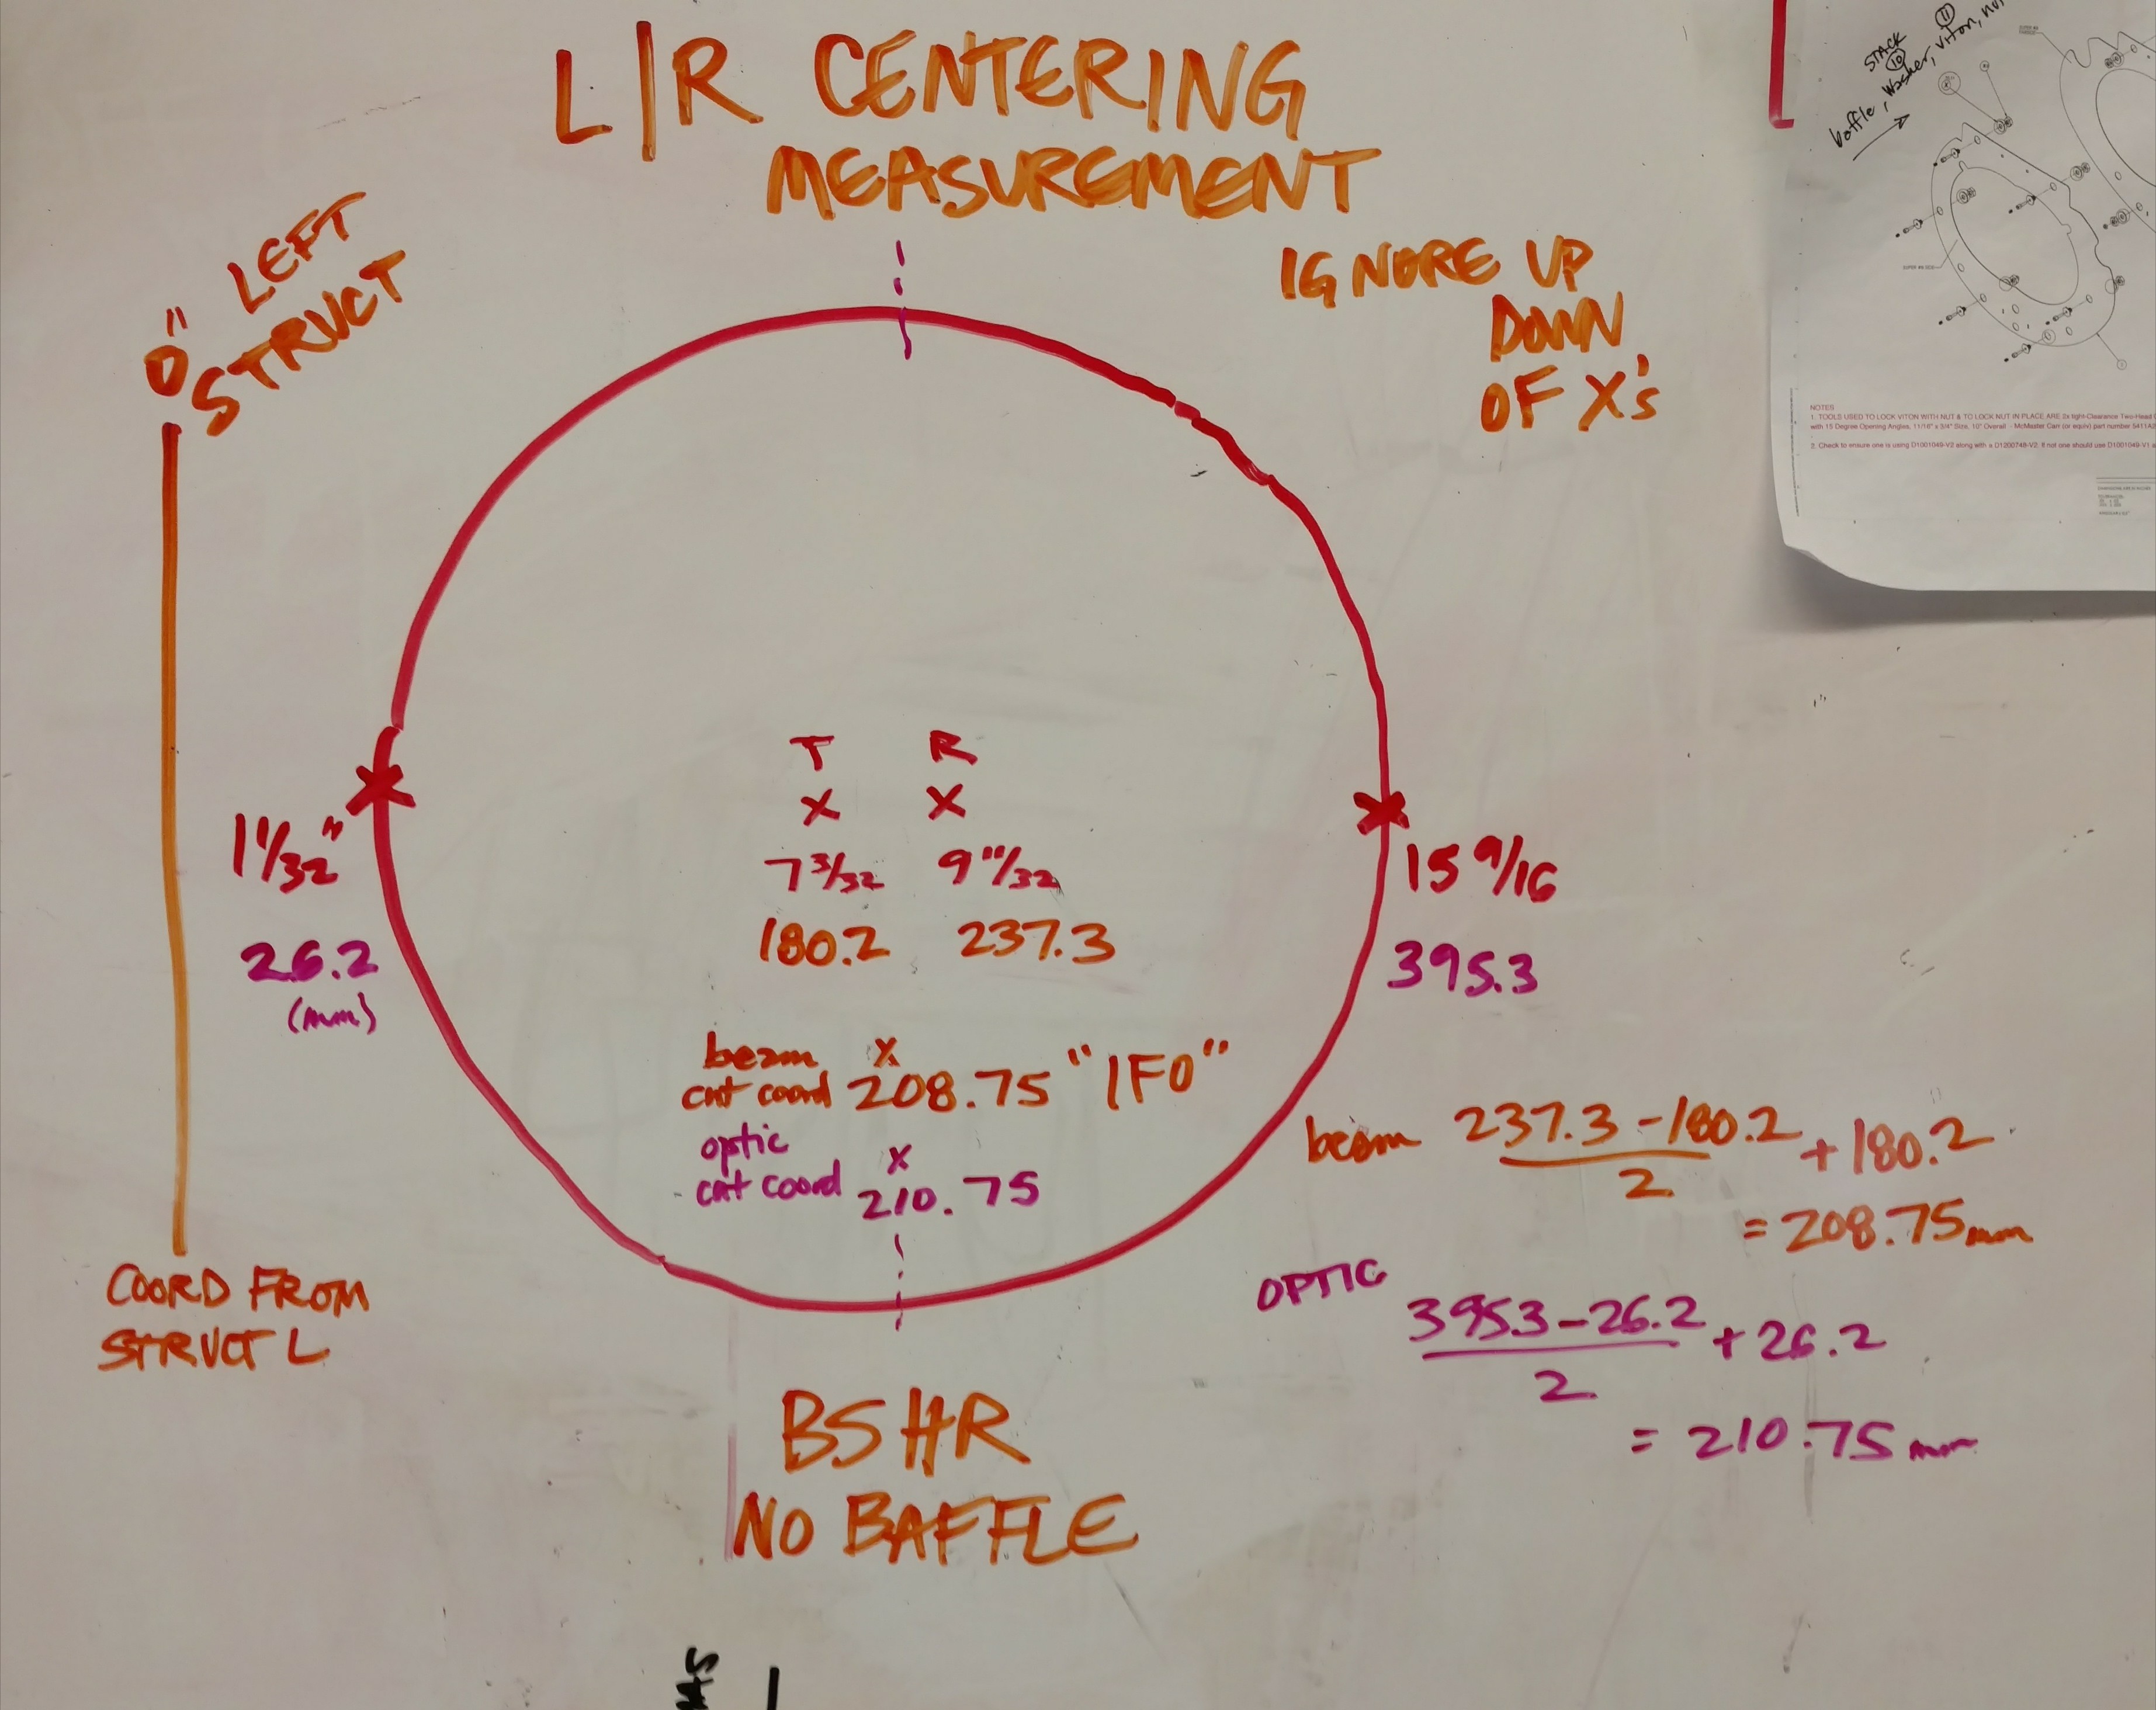 L|R CENTERING
MEASUREMENT
0" LEFT
STRUCT
IGNORE UP
DOWN
OF X's
T R
X X
7 3/32 9 11/32
180.2 237.3
1 1/32"
26.2
(mm)
15 9/16
395.3
beam x
cnt coord 208.75 "IFO"
optic x
cnt coord 210.75
beam 237.3 - 180.2 + 180.2
2
= 208.75mm
OPTIC
395.3 - 26.2 + 26.2
2
= 210.75 mm
COORD FROM
STRUCT L
BSHR
NO BAFFLE
STACK 10 11
baffle, washer, viton,
NOTES
1. TOOLS USED TO LOCK VITON WITH NUT & TO LOCK NUT IN PLACE ARE 2x tight-Clearance Two-Head
with 15 Degree Opening Angles, 11/16" x 3/4" Size, 10" Overall - McMaster Carr (or equiv) part number 5411A2
2. Check to ensure one is using D1001049-V2 along with a D1200748-V2. If not one should use D1001049-V1